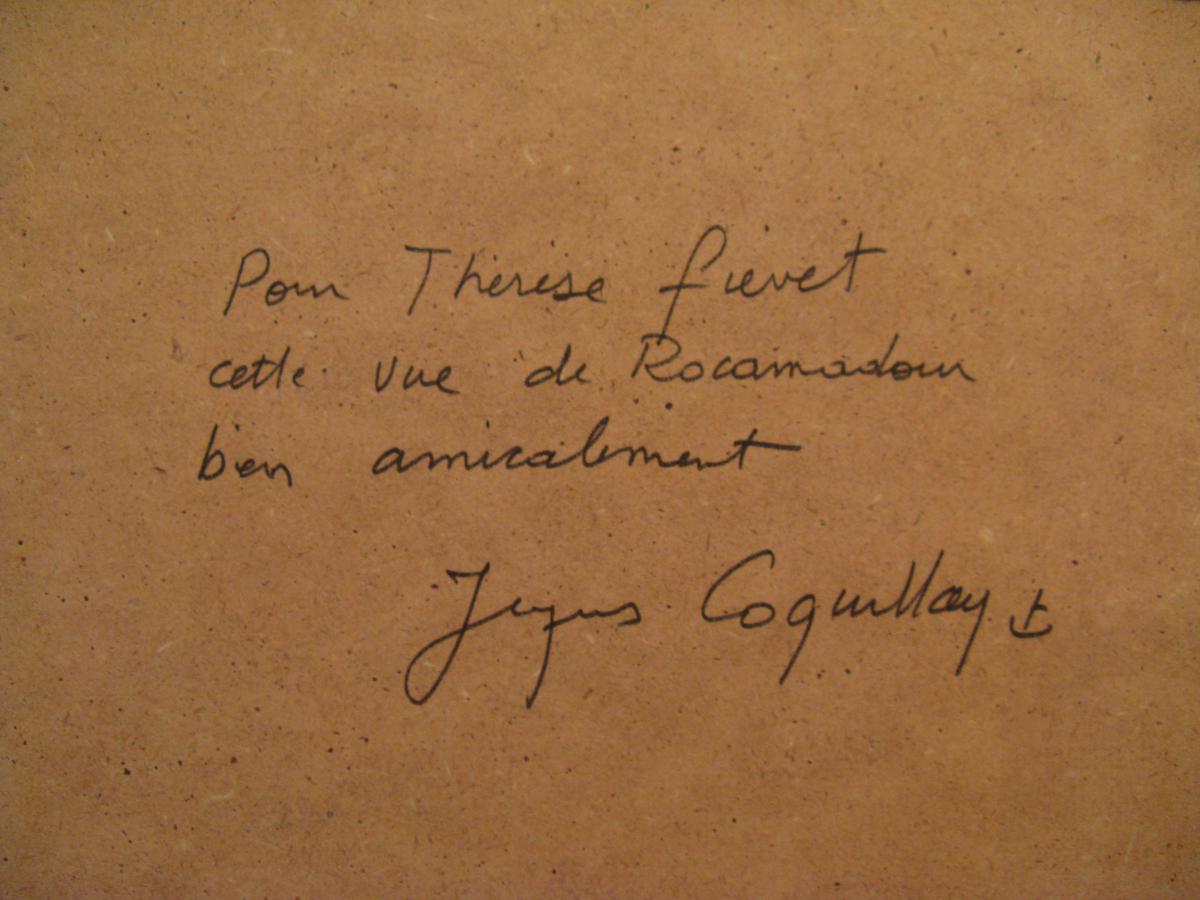 Pour Thérèse fievet
cette vue de Rocamadour
bien amicalement
Jacques Coquillay